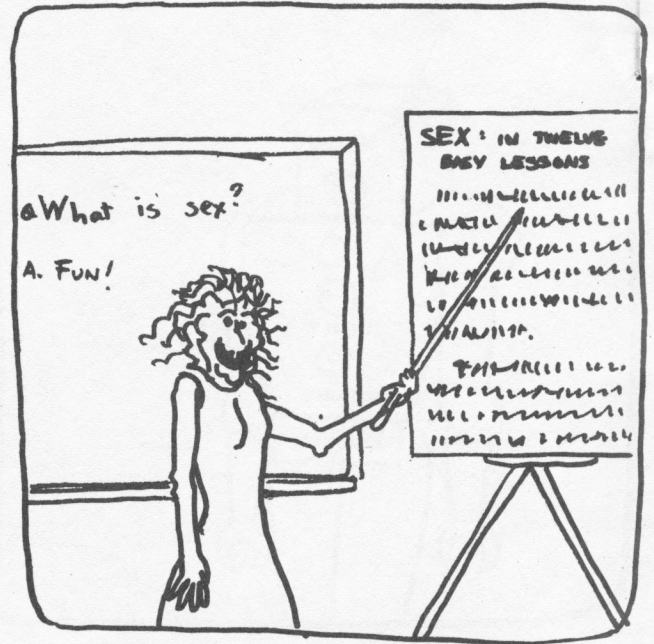 Q What is sex?
A. FUN!
SEX: IN TWELVE
EASY LESSONS